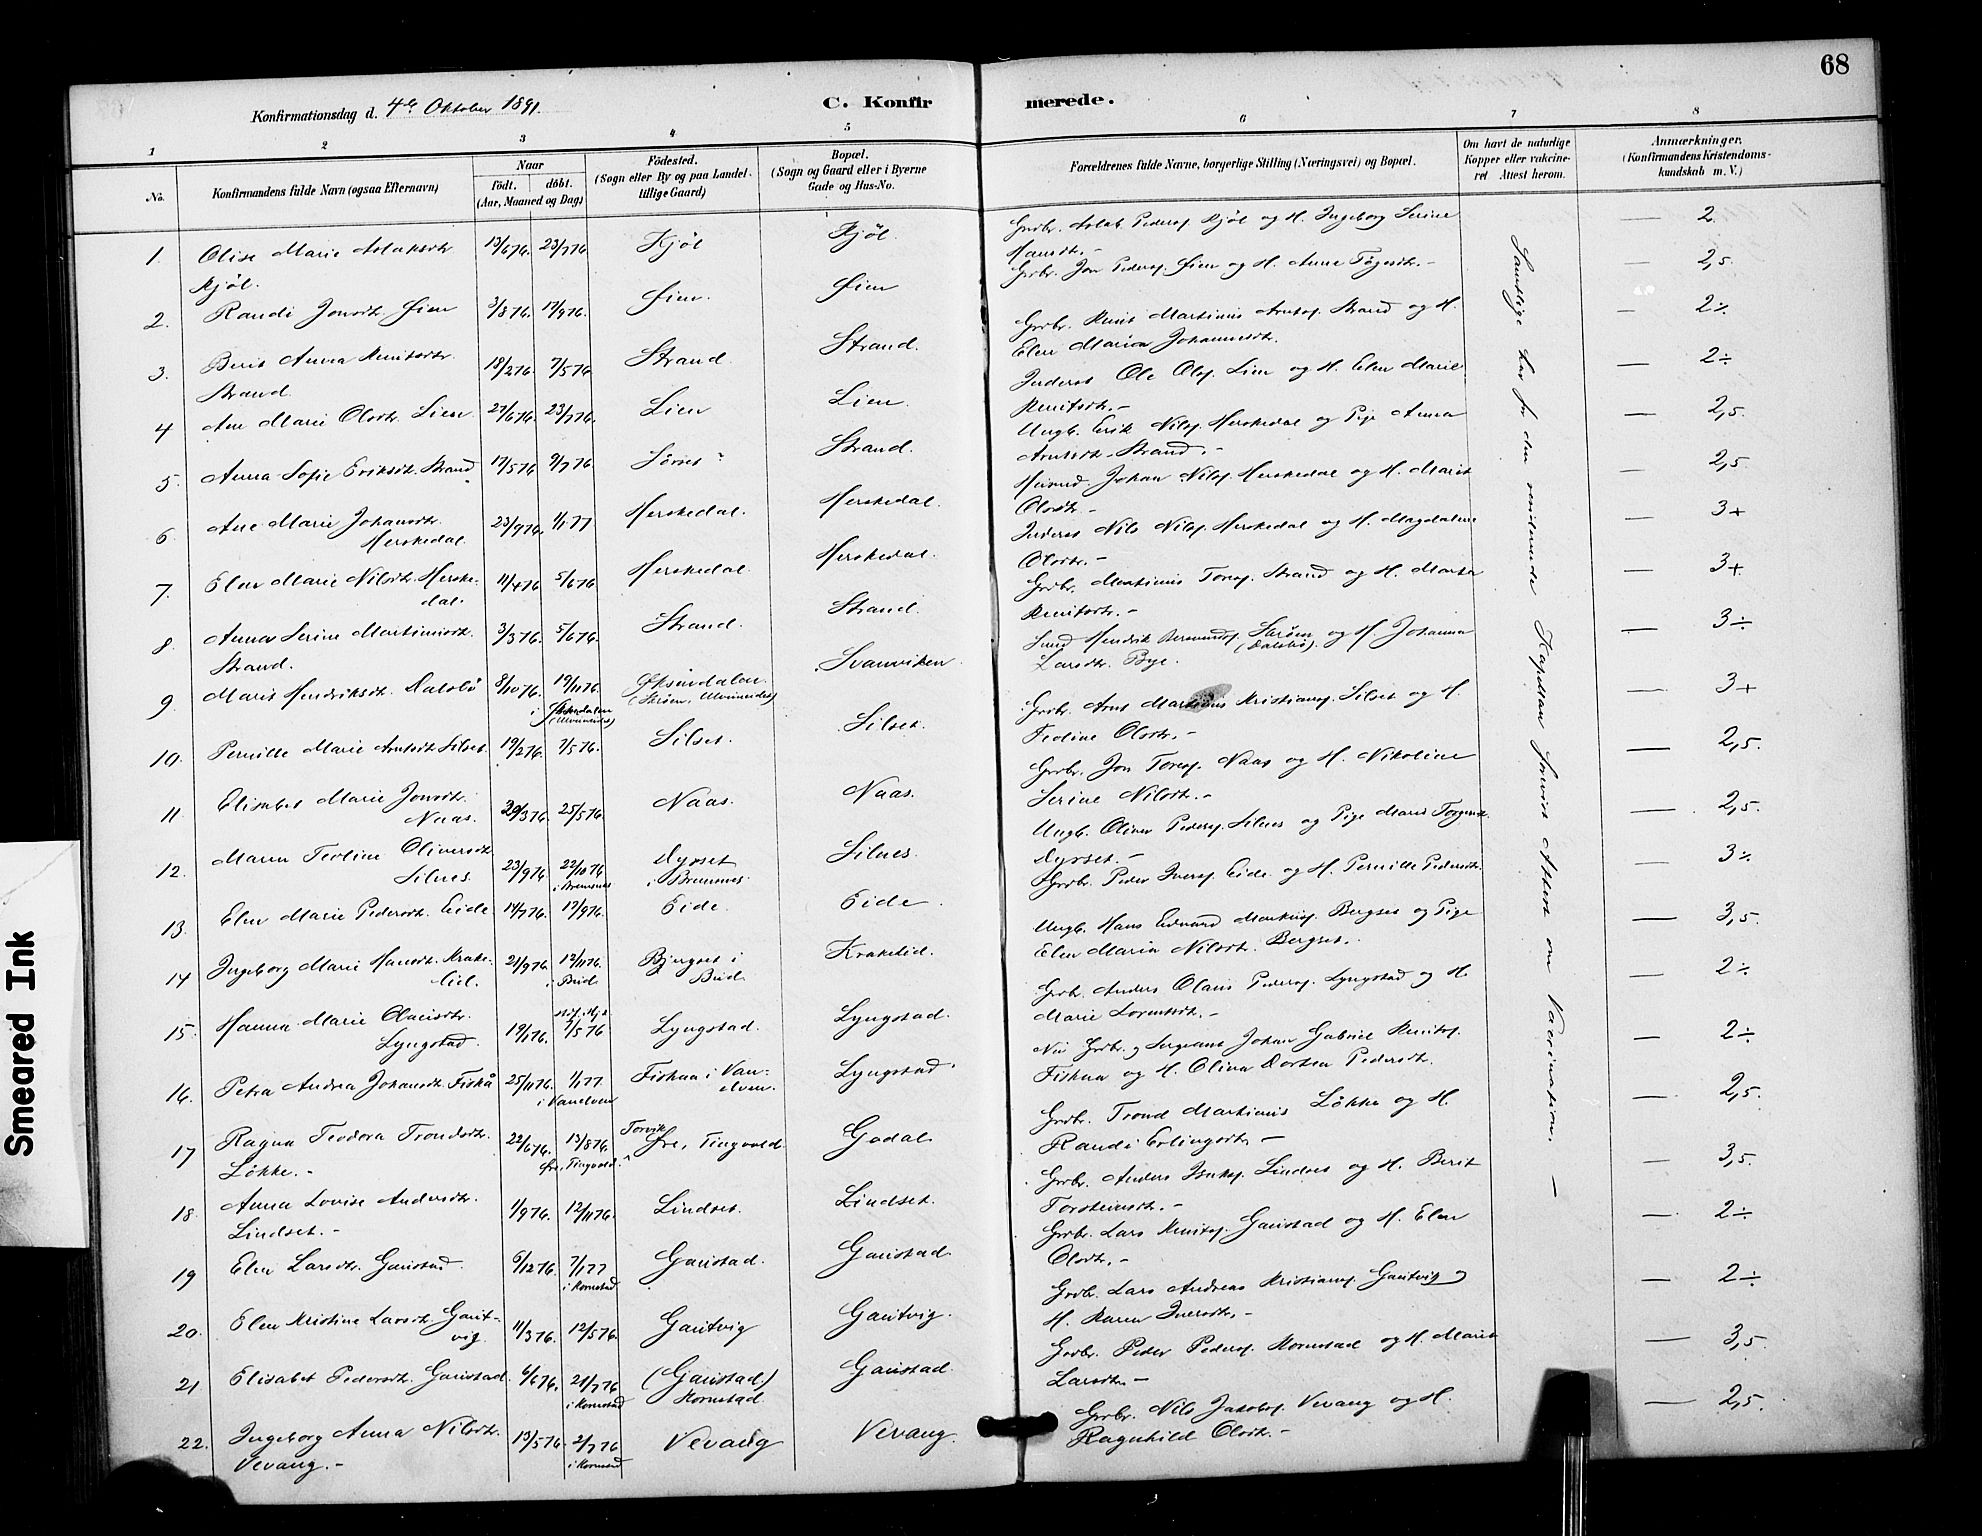 68
Konfirmationsdag d. 4de Oktober 1891.
C. Konfirmerede.
1 2 3 4 5 6 7 8
No.
Konfirmandens fulde Navn (ogsaa Efternavn)
Naar
födt. döbt.
(Aar, Maaned og Dag)
Födested.
(Sogn eller By og paa Landet tillige Gaard)
Bopæl.
(Sogn og Gaard eller i Byerne Gade og Hus-No.
Forældrenes fulde Navne, borgerlige Stilling (Næringsvei) og Bopæl.
Om havt de naturlige Kopper eller vakcineret Attest herom.
Anmærkninger.
(Konfirmandens Kristendomskundskab m. V.)
1. Olise Marie Aslaksdtr. Kjøl. 13/6 76. 23/7 76 Kjøl Kjøl. Grdbr. Aslak Peders. Kjøl og H. Ingeborg Serine Hansdtr.- — 2.
2. Randi Jonsdtr. Øien 3/8 76. 17/9 76. Øien. Øien Grbr. Jon Peders. Øien og H. Anne Tøgesdtr.- — 2,5.
3. Berit Anna Knutsdtr. Strand. 18/2 76. 7/5 76 Strand. Strand. Grdbr. Knut Martinus Arntss. Strand og H. Elen Maria Johannesdtr. — 2÷
4 Ane Marie Olsdtr. Lien 27/6 76. 23/7 76. Lien Lien. Inderst Ole Ols. Lien og H. Elen Marie Knutsdtr.- — 2÷
5. Anna Sofie Eriksdtr. Strand. 17/5 76 9/7 76 Strand. Ungk. Erik Nils. Herskedal og Pige Anna Arntsdtr. Strand.- — 2,5.
6. Ane Marie Johansdtr. Herskedal. 23/9 76. 1/1 77 Herskedal. Herskedal. Johan Nils. Herskedal og H. Marit Olsdtr.- — 2,5.
7. Elen Marie Nilsdtr. Herskedal. 11/4 76 5/6 76 Herskedal Herskedal. Inderst Nils Nils. Herskedal og H. Magdalene Olsdtr.- — 3+
8. Anna Serine Martinusdtr. Strand. 3/3 76. 5/6 76. Strand. Strand. Grdbr. Martinus Tores. Strand og H. Marta Knutsdtr.- — 3+
9 Marit Hendriksdtr. Dalsbö 8/10 76. 19/11 76. i Øksendalen (Ulvundeidet) Øksendalen (Strøm, Ulvundeidet) Svanviken. Hendrik (Dalsbø) og H. Johanna Larsdtr. Bye. — 3÷
10. Pernille Marie Arntsdtr. Silset. 19/2 76 7/5 76. Silset. Silset. Grdbr. Arnt Martinus Kristians. Silset og H. Teoline Olsdtr.- — 3+
11 Elisabet Marie Jonsdtr. Naas. 29/3 76. 25/5 76. Naas. Naas. Grdbr. Jon Tores. Naas og H. Nikoline Serine Nilsdtr.- — 2,5.
12. Maren Teoline Oliversdtr. Silnes. 23/9 76 22/10 76 i Bremsnes Dyrset i Bremsnes. Silnes. Ungk. Oliver Peders. Silnes og Pige Marit Dyrset.- — 2,5.
13. Elen Marie Pedersdtr. Eide. 14/7 76. 17/9 76. Eide. Eide. Grdbr. Peder Ivers. Eide og H. Pernille Pedersdtr. — 3÷
14 Ingeborg Marie Hansdtr. Krakelid. 21/9 76. 12/11 76. i Bud Bjergset i Bud. Krakelid. Ungk. Hans Edvard Bergset og Pige Elen Maria Nilsdtr. Bergset.- — 3,5.
15. Hanna Marie Olausdtr. Lyngstad. 19/1 76. 7/5 76 Lyngstad. Lyngstad. Grdbr. Anders Olaus Peders. Lyngstad og H. Marie Lorentsdtr.- — 2÷
16. Petra Andrea Johansdtr. Fiskå 25/11 76. 1/1 77 i Vanelven Fiskaa i Vanelven. Lyngstad. Nu Grdbr. og Sergeant Johan Gabriel Knuts. Fiskaa og H. Olina Dortea Pedersdtr. — 2÷
17 Ragna Teodora Trondsdtr. Løkke.- 22/6 76. 13/8 76. Øre, Tingvold. Torvik Øre, Tingvold. Godal. Grdbr. Trond Martinus Løkke og H. Randi Erlingsdtr.- — 2,5.
18. Anna Lovise Andersdtr. Lindset.- 1/9 76. 12/11 76. Lindset. Lindset. Grdbr. Anders Lindset og H. Berit Torsteinsdtr.- — 3,5.
19 Elen Larsdtr. Gaustad. 6/12 76. 7/1 77 i Kornstad Gaustad. Gaustad. Grdbr. Lars Knuts. Gaustad og H. Elen Olsdtr.- — 2÷
20. Elen Kristine Larsdtr. Gautvig. 11/3 76. 12/5 76. Gautvig Gautvig. Grdbr. Lars Andreas Kristians. Gautvig og H. Karen Iversdtr.- — 2÷
21 Elisabet Pedersdtr. Gaustad 6/6 76. 21/7 76 i Kornstad (Gaustad) Kornstad. Gaustad. Grdbr. Peder Peders. Kornstad og H. Marit Larsdtr.- — 3,5.
22. Ingeborg Anna Nilsdtr. Vevang.- 13/5 76. 2/7 76 i Kornstad Vevang Vevang. Grdbr. Nils Jakobs. Vevang og H. Ragnhild Olsdtr.- — 2,5.
Samtlige har for den residerende Kapellan forevist Attest om Vaccination.-
Smeared Ink